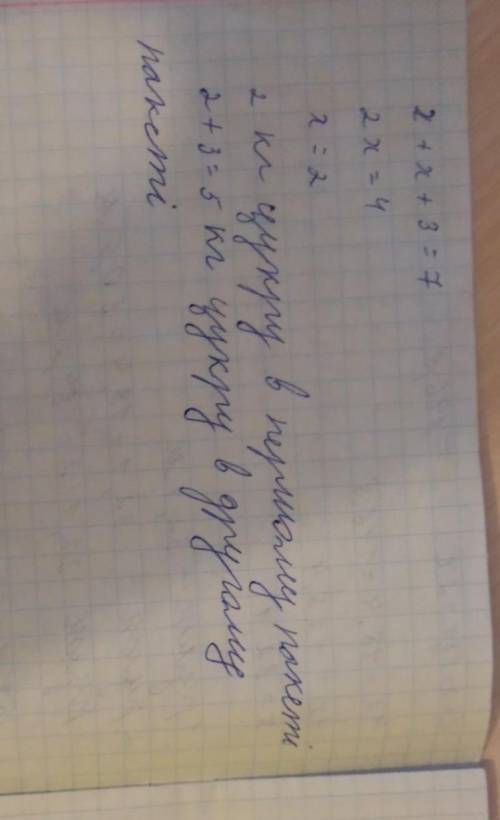 x + x + 3 = 7
2x = 4
x = 2
2 кг цукру в першому пакеті
2 + 3 = 5 кг цукру в другому
пакеті